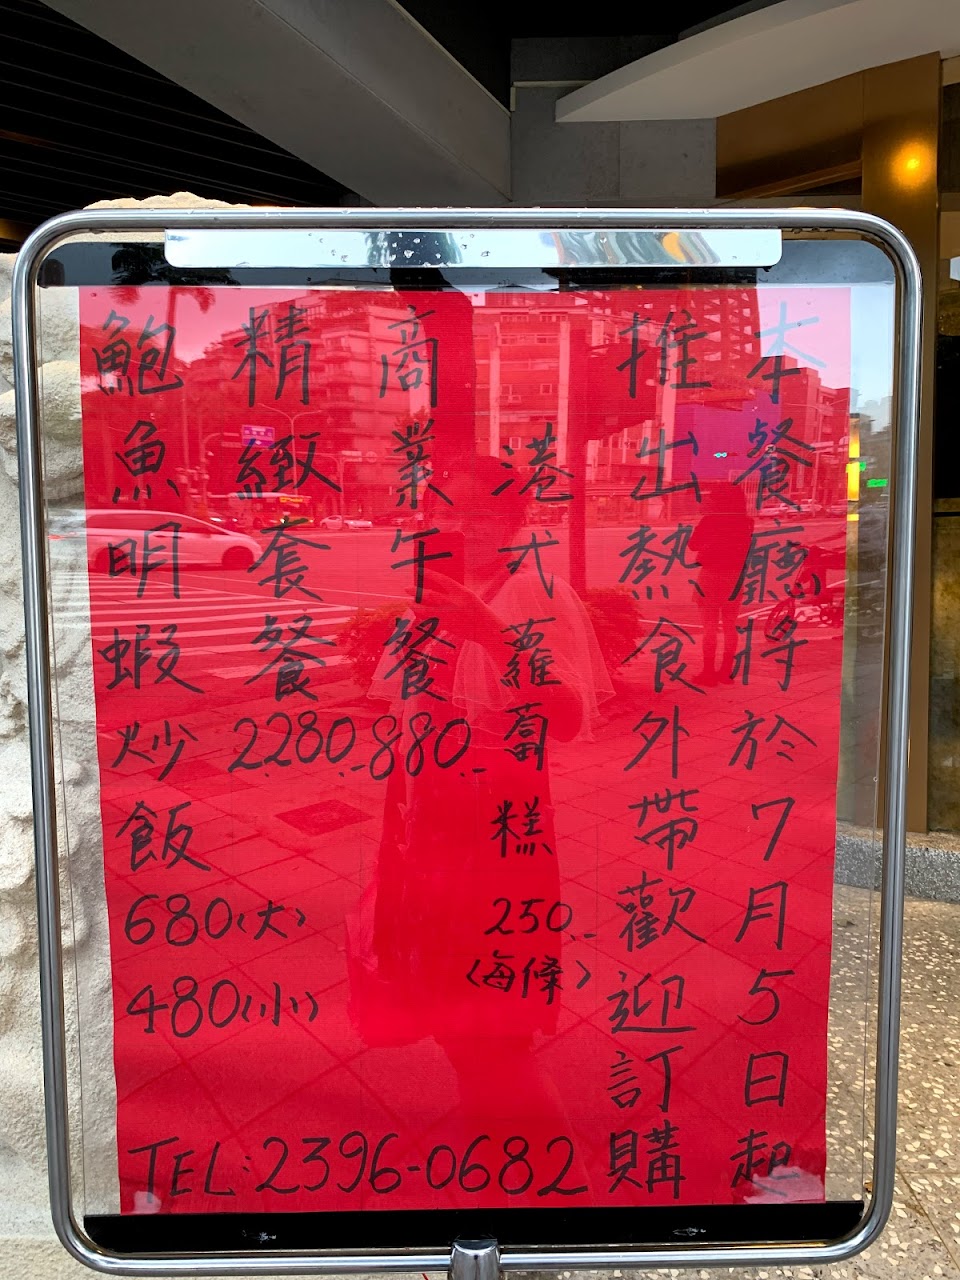 本餐廳將於7月5日起
推出熱食外帶歡迎訂購
港式蘿蔔糕250.-(每條)
商業午餐880.-
精緻套餐2280.-
鮑魚明蝦炒飯680(大)
480(小)
TEL:2396-0682